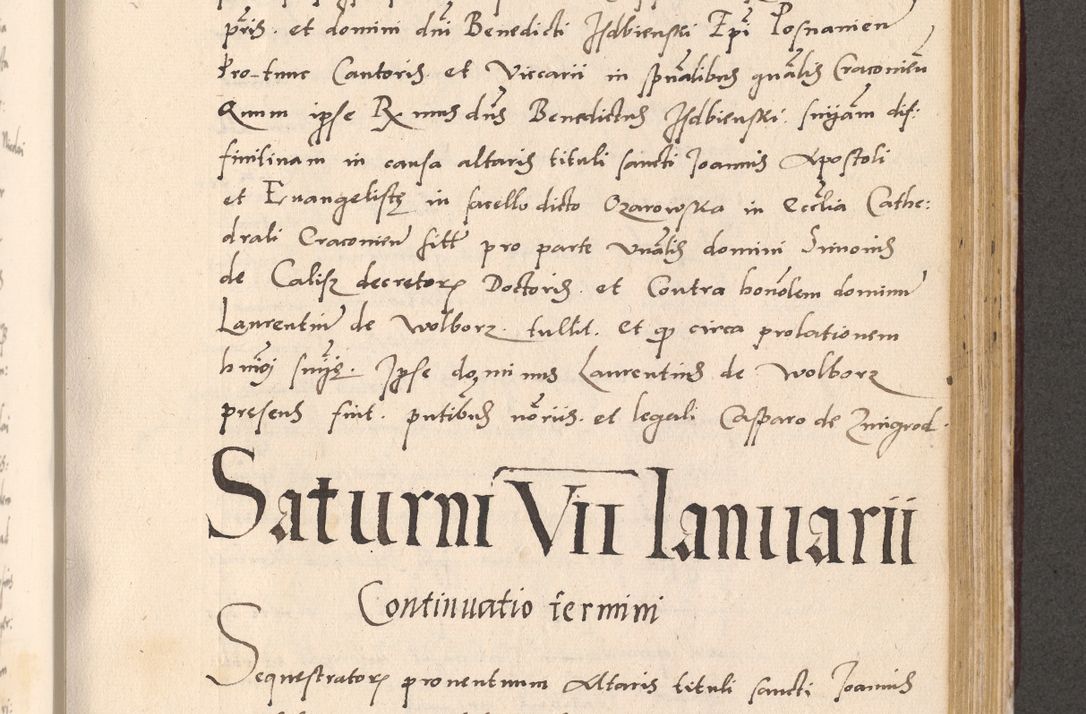 pñs. et domini dni Benedicti Jsdbienski Epi Posnanien
Pro-tunc Cantoris et Viccarii in spũalibus gnãlis Cracovien
Quum ipse Rx mus dns Benedictus Jsdbienski. sniam dif:
finitivam in causa altaris tituli sancti Joannis Apostoli
et Evangelistę in sacello dicto Ozarowska in Ecclia Cathe:
drali Cracovien sitt pro parte vnãlis domini Simonis
de Calisz decretorꝝ Doctoris. et Contra honõlem dominũ
Laurentiũ de Wolborz. tullit. et ꝙ circa prolationem
hmõi sniȩ. Jpse dominus Laurentius de Wolborz
pręsens fuit. pntibus nõriis. et legali Casparo de Zmigrod.
Saturni VII Ianuarii
Continuatio termini
Sequestratorꝝ proventuum Altaris tituli sancti Joannis